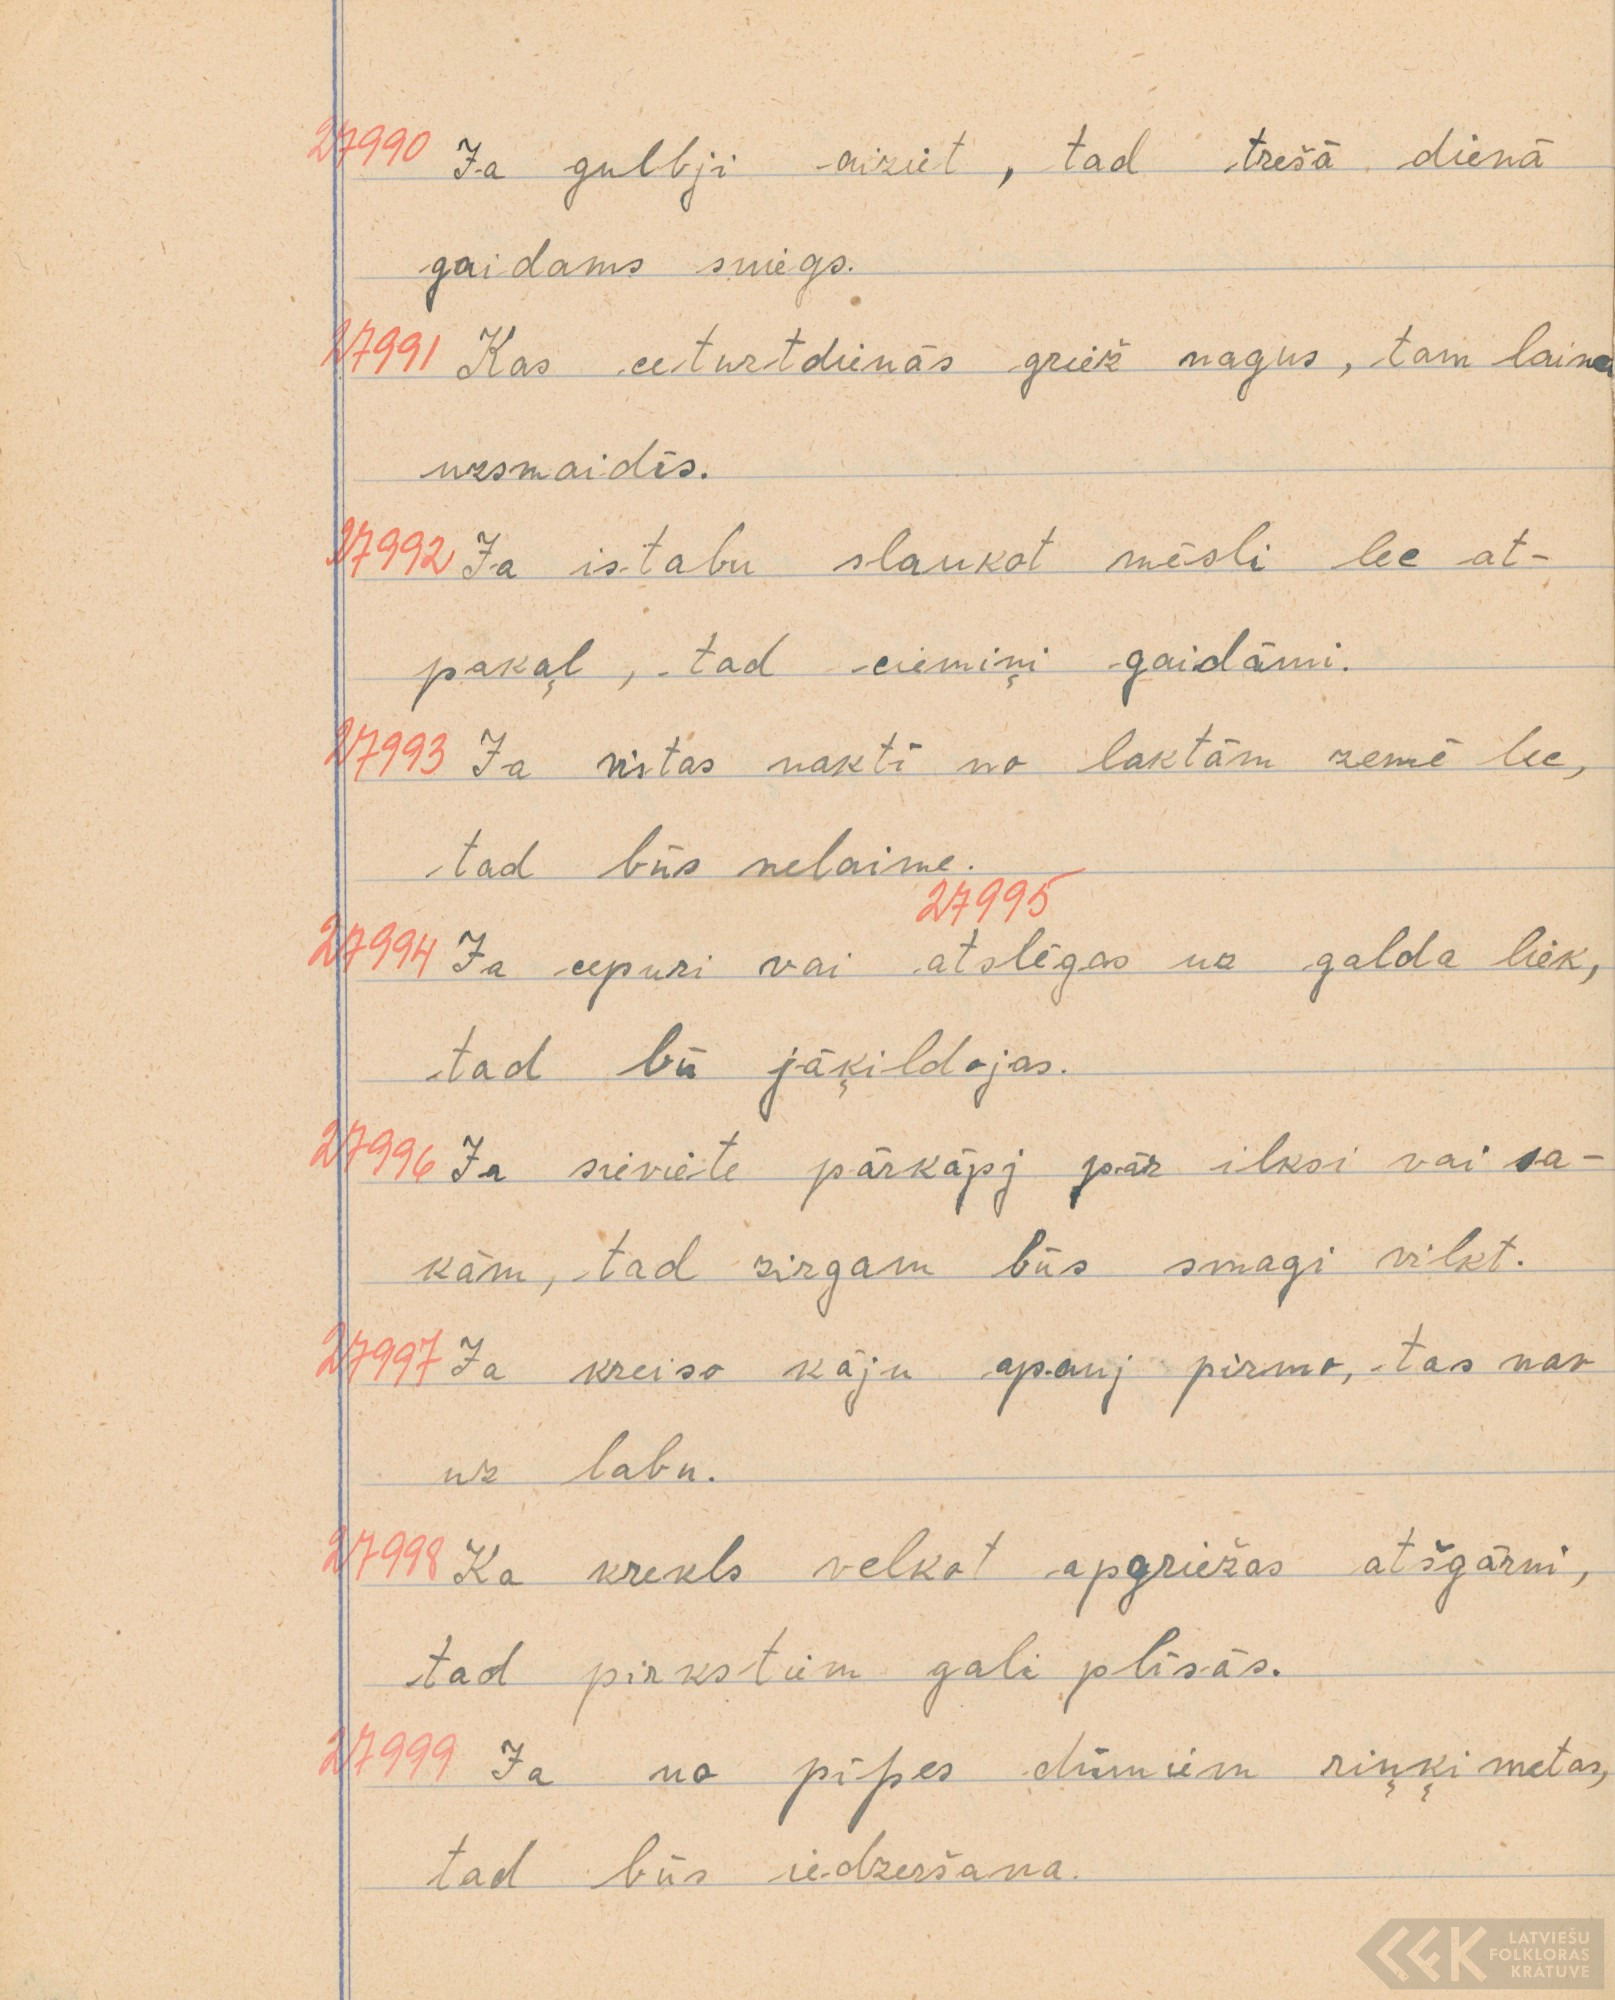 27990 Ja gulbji aiziet, tad trešā dienā
gaidams sniegs.
27991 Kas ceturtdienās griež nagus, tam laime
uzsmaidīs.
27992 Ja istabu slaukot mēsli lec at-
pakaļ, tad ciemiņi gaidāmi.
27993 Ja vistas naktī no laktām zemē lec,
tad būs nelaime.
27995
27994 Ja cepuri vai atslēgas uz galda liek,
tad bū jāķildojas.
27996 Ja sieviete pārkāpj pār ilksi vai sa-
kām, tad zirgam būs smagi vilkt.
27997 Ja kreiso kāju apauj pirmo, tas nav
uz labu.
27998 Ka krekls velkot apgriežas atšgārni,
tad pirkstiem gali plīsās.
27999 Ja no pīpes dūmiem riņķi metas,
tad būs iedzeršana.
LATVIEŠU
FOLKLORAS
KRĀTUVE